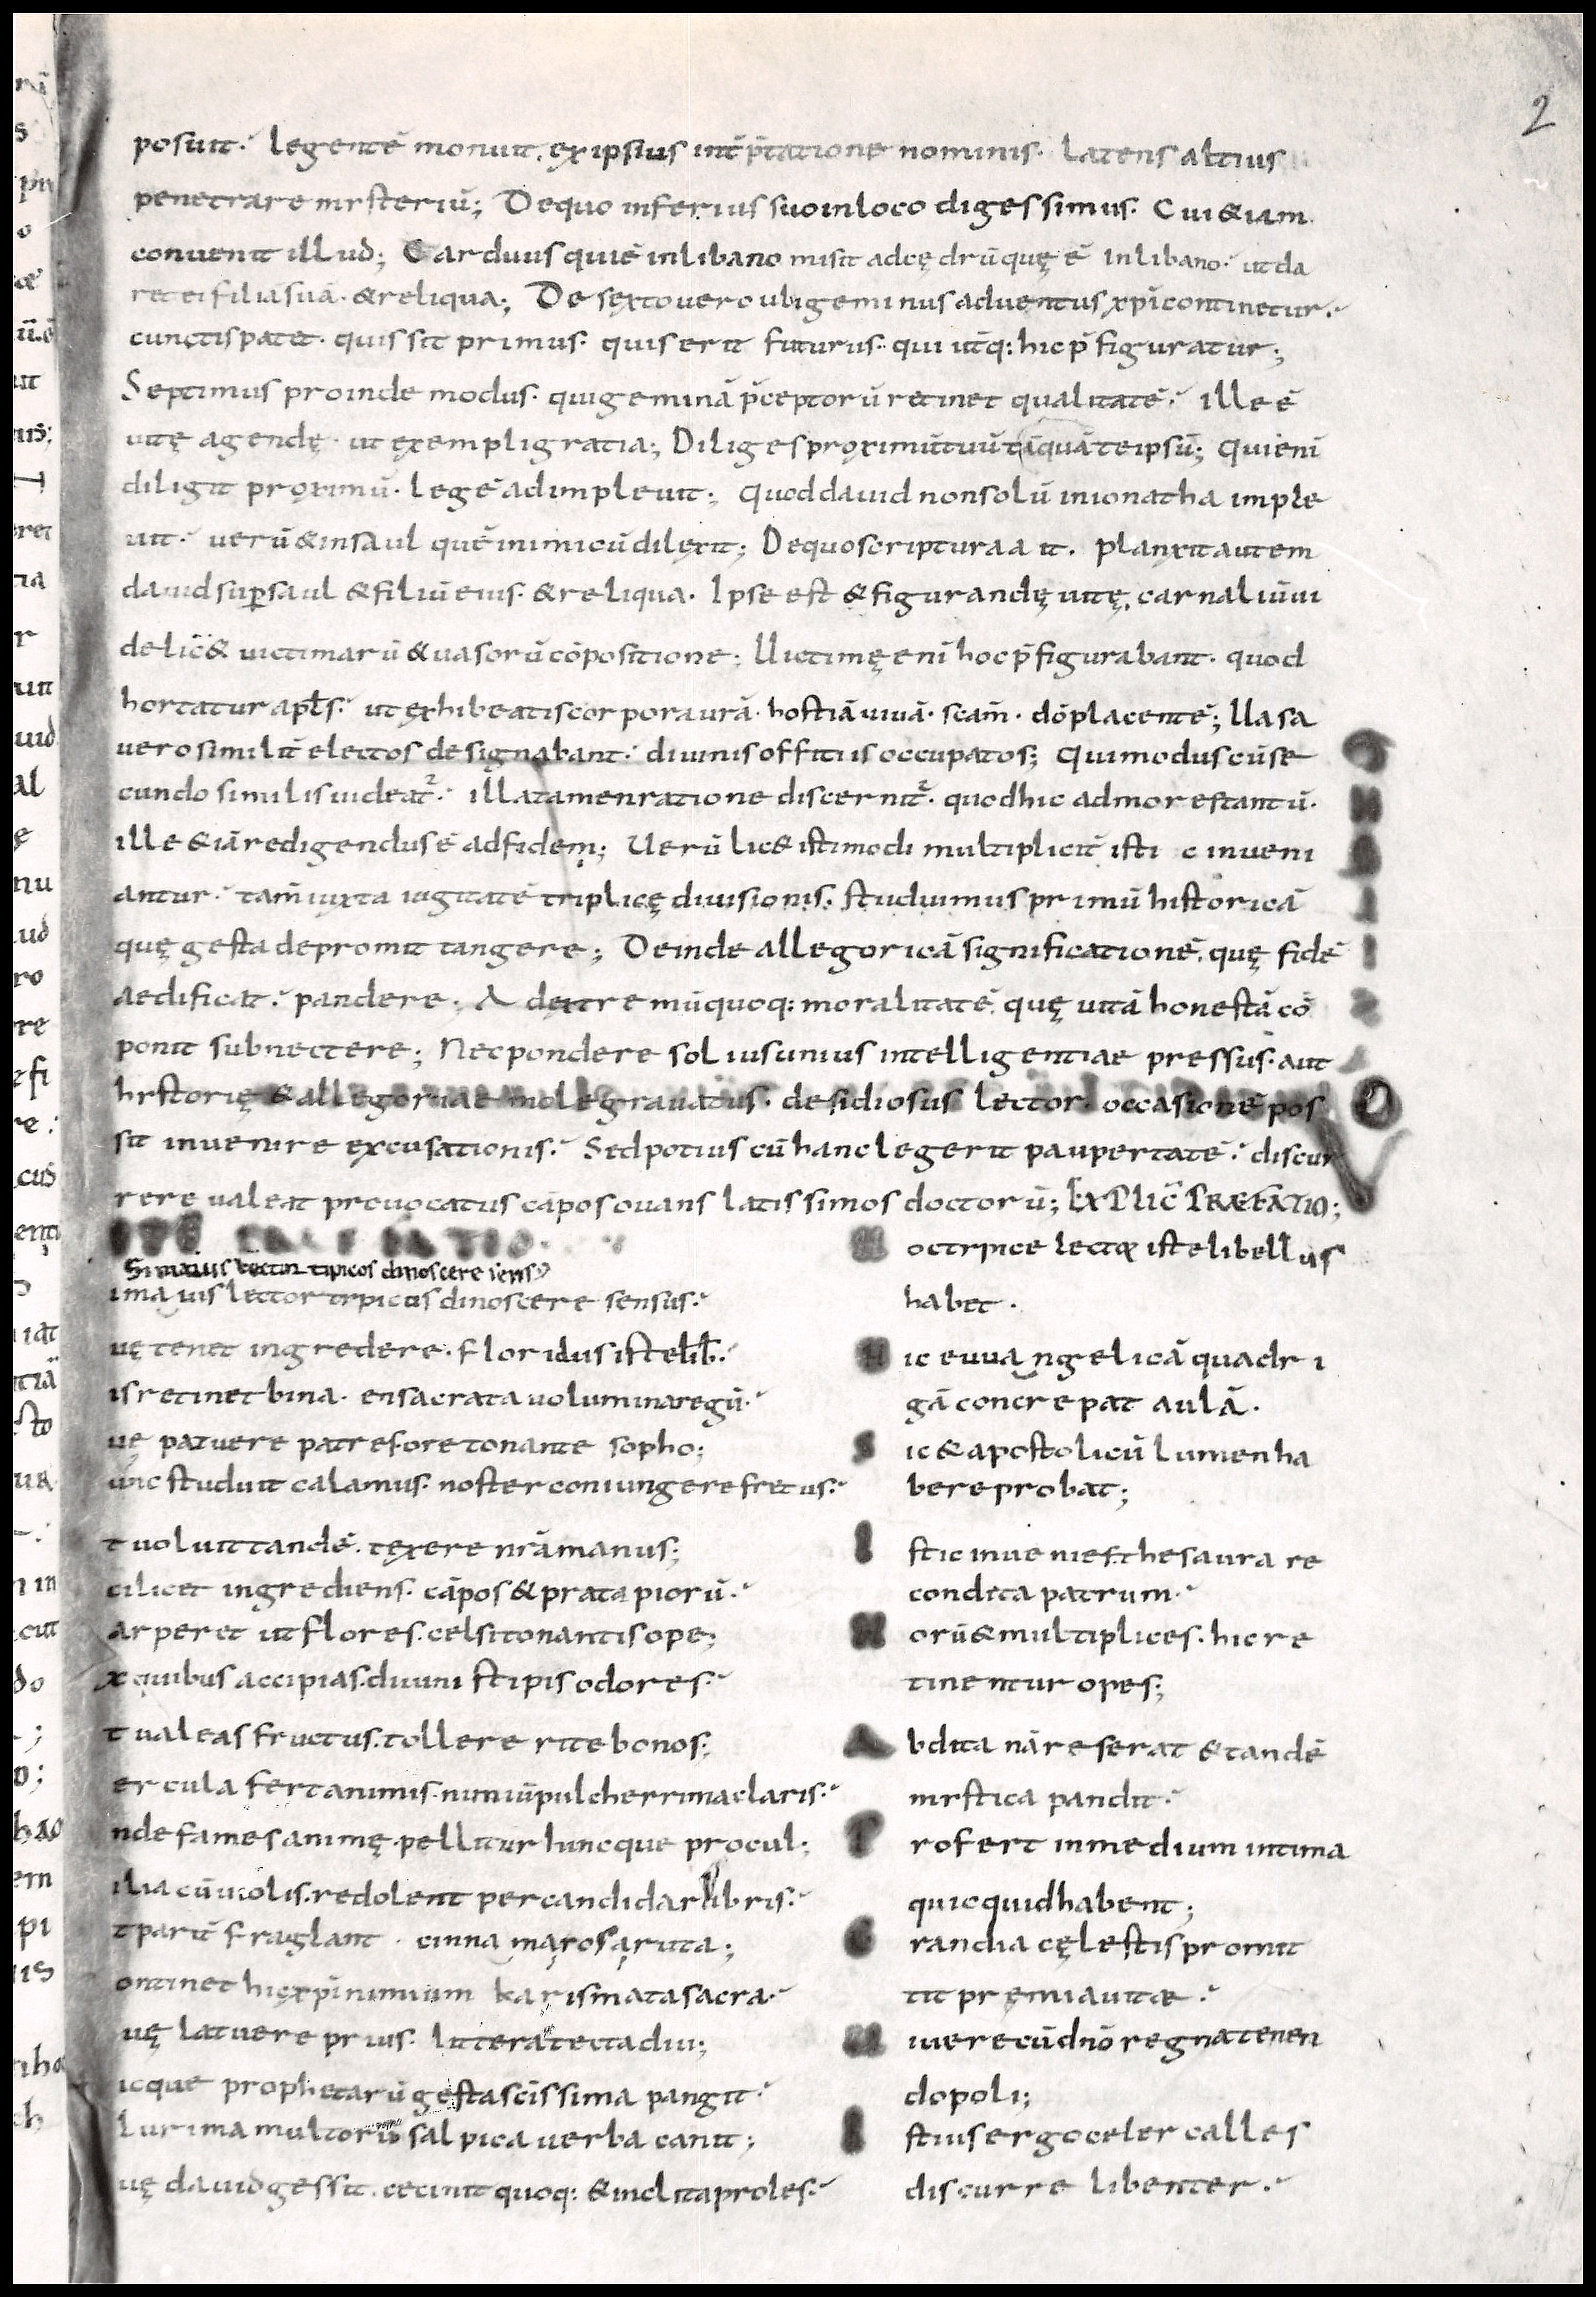 2
posuit. legentē monuit. ex ipsius int̄p̄tatione nominis. latens altius
penetrare mysteriū; De quo inferius suo in loco digessimus. Cui & iam
conuenit illud; Carduus qui ē in libano misit ad cędrū quę ē in libano. ut da
ret ei filiā suā. & reliqua; De sexto uero ubi geminus aduentus xp̄i continetur.
cunctis patet. quis sit primus. quis erit futurus. qui ut̄q: hic p̄figuratur;
Septimus proinde modus. qui geminā p̄ceptorū retinet qualitatē. ille ē
uitę agendę. ut exempli gratia; Diliges proximū tuū tāquā te ipsū; Qui enī
diligit proximū. legē adimpleuit; Quod dauid non solū in ionatha imple
uit. uerū & in saul quē inimicū dilexit; De quo scriptura ait. planxit autem
dauid sup saul & filiū eius. & reliqua. Ipse est & figurandę uitę. carnaliū ui
delic̄ & uictimarū & uasorū cōpositione; Uictimę enī hoc p̄figurabant. quod
hortatur apl̄s. ut exhibeatis corpora urā. hostiā uiuā. sc̄am. dō placentē; Uasa
uero similit̄ electos designabant. diuinis offitiis occupatos; Qui modus cū se
cundo similis uideat̄. illa tamen ratione discernit̄. quod hic ad mores tantū.
ille & iā redigendus ē ad fidem; Uerū lic& isti modi multiplicit̄ isti c inueni
antur. tam̄ iuxta iugitatē triplicę diuisionis. studuimus primū historicā
quę gesta depromit tangere; Deinde allegoricā significationē. quę fidē
aedificat. pandere. Ad extremū quoq: moralitatē. quę uitā honestā cō
ponit subnectere; Nec pondere solius unius intelligentiae pressus. aut
hystorię & allegoriae mole grauatus. desidiosus lector. occasionē pos
sit inuenire excusationis. Sed potius cū hanc legerit paupertatē. discur
rere ualeat prouocatus cāpos ouans latissimos doctorū; EXPLIC̄ PRAEFATIO;
Si mauis lector tipicos dinoscere sens
ima uis lector typicus dinoscere sensus.
uę tenet ingredere. floridus iste lib̄.
is retinet bina. en sacrata uolumina regū.
uę patuere patre fore tonante sopho;
unc studuit calamus. noster coniungere fretus.
t uoluit tandē. texere nrā manus;
cilicet ingrediens. cāpos & prata piorū.
arperet ut flores. celsitonantis ope;
x quibus accipias. diuini stipis odores.
t ualeas fructus. tollere rite bonos;
ercula fert animis. nimiū pulcherrima claris.
nde fames animę. pellitur huncque procul;
ilia cū uiolis. redolent per candida libris.
t parit̄ fraglant. cinnama rosa ruta;
ontinet hic xp̄i nimium karismata sacra.
uę latuere prius. littera tecta diu;
icque prophetarū gesta sc̄issima pangit.
lurima multorū salpica uerba canit;
uę dauid gessit. cecinit quoq: & inclita proles.
M octrince lectор iste libellus
habet.
H ic euuangelicā quadri
gā concrepat aulā.
S ic & apostolicū lumen ha
bere probat;
I stic inuenies thesaura re
condita patrum.
H orū & multiplices. hic re
tinentur opes;
A bdita nā reserat & tandē
mystica pandit.
P rofert in medium intima
quicquid habent;
G randia cęlestis promit
tit premia uitae.
uiuere cū dnō regna tenen
do poli;
I stius ergo celer calles
discurre libenter.